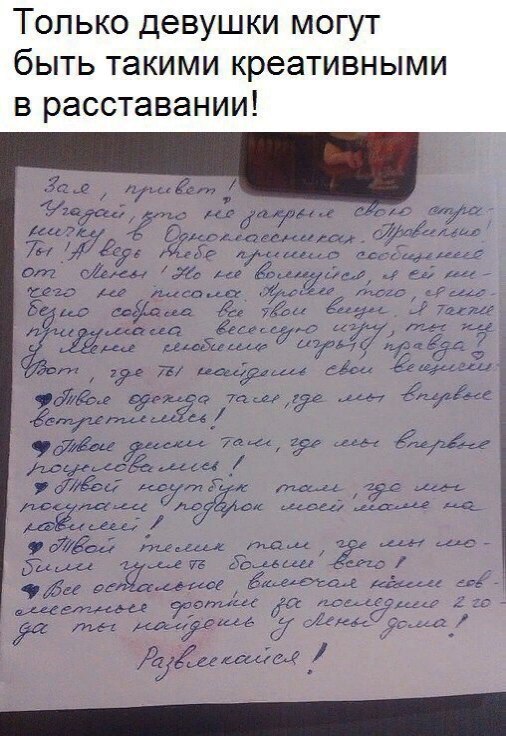 Только девушки могут
быть такими креативными
в расставании!
Зая, привет!
Угадай, кто не закрыл свою стра-
ничку в Одноклассниках. Правильно!
Ты! А ведь тебе пришло сообщение
от Лены! Но не волнуйся, я ей ни-
чего не писала. Кроме того, я лю-
безно собрала все твои вещи. Я также
придумала веселую игру, ты же
у меня любишь играть, правда?
Вот, где ты найдешь свои вещички:
Твоя одежда там, где мы впервые
встретились!
Твои диски там, где мы впервые
поцеловались!
Твой ноутбук там, где мы
покупали подарок моей маме на
юбилей!
Твой телик там, где мы лю-
били гулять больше всего!
Все остальное, включая наши сов-
местные фотки за последние 2 го-
да ты найдешь у Лены дома!
Развлекайся!